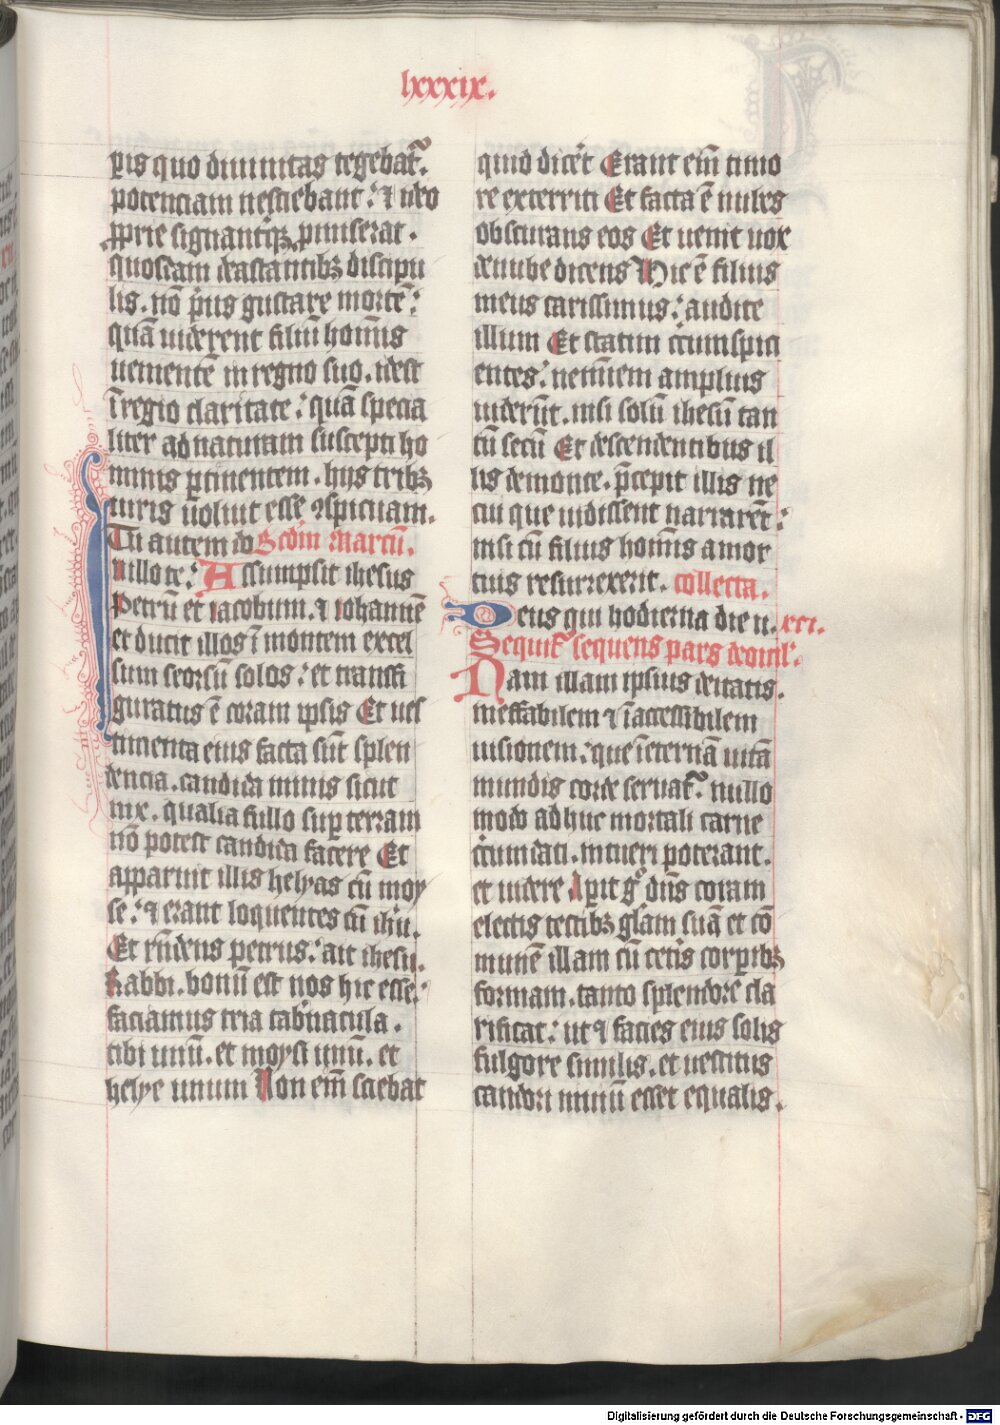 lxxxix.
ꝑis quo diuinitas tegebat᷑.
potenciam nesciebant: ⁊ ideo
ꝓprie signantiqꝫ ꝓmiserat.
quosdam de astantibꝫ discipu
lis. nō p̄us gustare mortē:
quā viderent filiū hoīnis
venientē in regno suo. idest
ī regio claritate: quā specia
liter ad naturam suscepti ho
minis ꝑtinentem. hijs tribꝫ
viris voluit esse ꝯspicuam.
Tu autem do Scdm̄ Marcū.
In illo tē: Assumpsit ihesus
Petrū et iacobum. ⁊ iohannē
et ducit illos ī montem excel
sum seorsū solos: et transfi
guratus ē coram ipsis Et ues
timenta eius facta sūt splen
dencia. candida nimis sicut
nix. qualia fullo suꝑ terram
nō potest candida facere Et
apparuit illis helyas cū moy
se: ⁊ erant loquentes cū ihū.
Et rn̄dens petrus: ait ihesu.
Rabbi. bonū est nos hic esse:
faciamus tria tab̄nacula.
tibi unū. et moysi unū. et
helye unum Non eīm sciebat
quid dicet Erant eīm timo
re exterriti Et facta ē nubes
obscurans eos Et uenit uox
de nube dicens Hic ē filius
meus carissimus: audite
illum Et statim c̄cumspici
entes: neminem amplius
viderūt. nisi solū ihesū tan
tū secū Et descendentibus il
lis de monte. p̄cepit illis ne
cui que uidissent narrarēt:
nisi cū filius hoīnis a mor
tuis resurrexerit. collecta.
Deus qui hodierna die u. xci.
Sequit᷑ sequens pars de omil᷑.
Nam illam ipsius deitatis.
ineffabilem ⁊ īaccessibilem
visionem: que ī eternā uitā
mundis corde seruat᷑. nullo
modo adhuc mortali carne
c̄cumdati. intueri poterant.
et uidere Aꝑit gͦ dn̄s coram
electis testibꝫ gl̄am suā et cō
munē illam cū cet̄is corꝑibꝫ
formam. tanto splendore cla
rificat: ut ⁊ facies eius solis
fulgore similis. et uestitus
candori niuiū esset equalis.
Digitalisierung gefördert durch die Deutsche Forschungsgemeinschaft - DFG